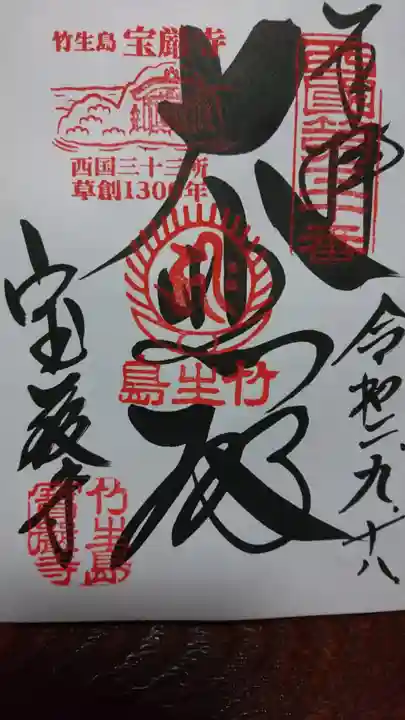 竹生島 宝厳寺
西国三十三所
草創1300年
奉拝
西国第三十番
大悲殿
竹生島
令和二、九、十八
宝厳寺
竹生島
寶嚴寺